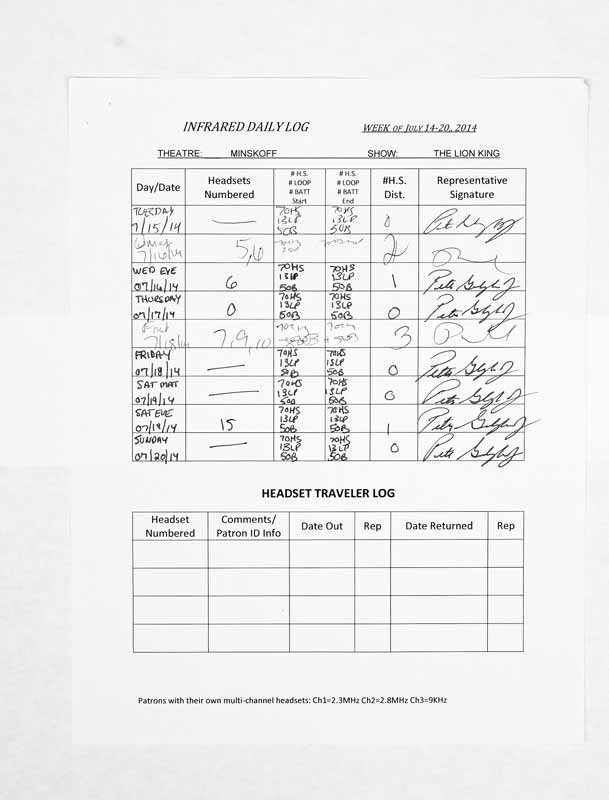 INFRARED DAILY LOG WEEK OF JULY 14-20, 2014
THEATRE: MINSKOFF SHOW: THE LION KING
Day/Date Headsets Numbered # H.S. # LOOP # BATT Start # H.S. # LOOP # BATT End #H.S. Dist. Representative Signature
TUESDAY 7/15/14 — 70HS 13LP 50B 70HS 13LP 50B 0
7/16/14 5,6 2
WED EVE 07/16/14 6 70HS 13LP 50B 70HS 13LP 50B 1
THURSDAY 07/17/14 0 70HS 13LP 50B 70HS 13LP 50B 0
7/18/14 7,9,10 3
FRIDAY 07/18/14 — 70HS 13LP 50B 70HS 13LP 50B 0
SAT MAT 07/19/14 — 70HS 13LP 50B 70HS 13LP 50B 0
SAT EVE 07/19/14 15 70HS 13LP 50B 70HS 13LP 50B 1
SUNDAY 07/20/14 — 70HS 13LP 50B 70HS 13LP 50B 0
HEADSET TRAVELER LOG
Headset Numbered Comments/ Patron ID Info Date Out Rep Date Returned Rep
Patrons with their own multi-channel headsets: Ch1=2.3MHz Ch2=2.8MHz Ch3=9KHz